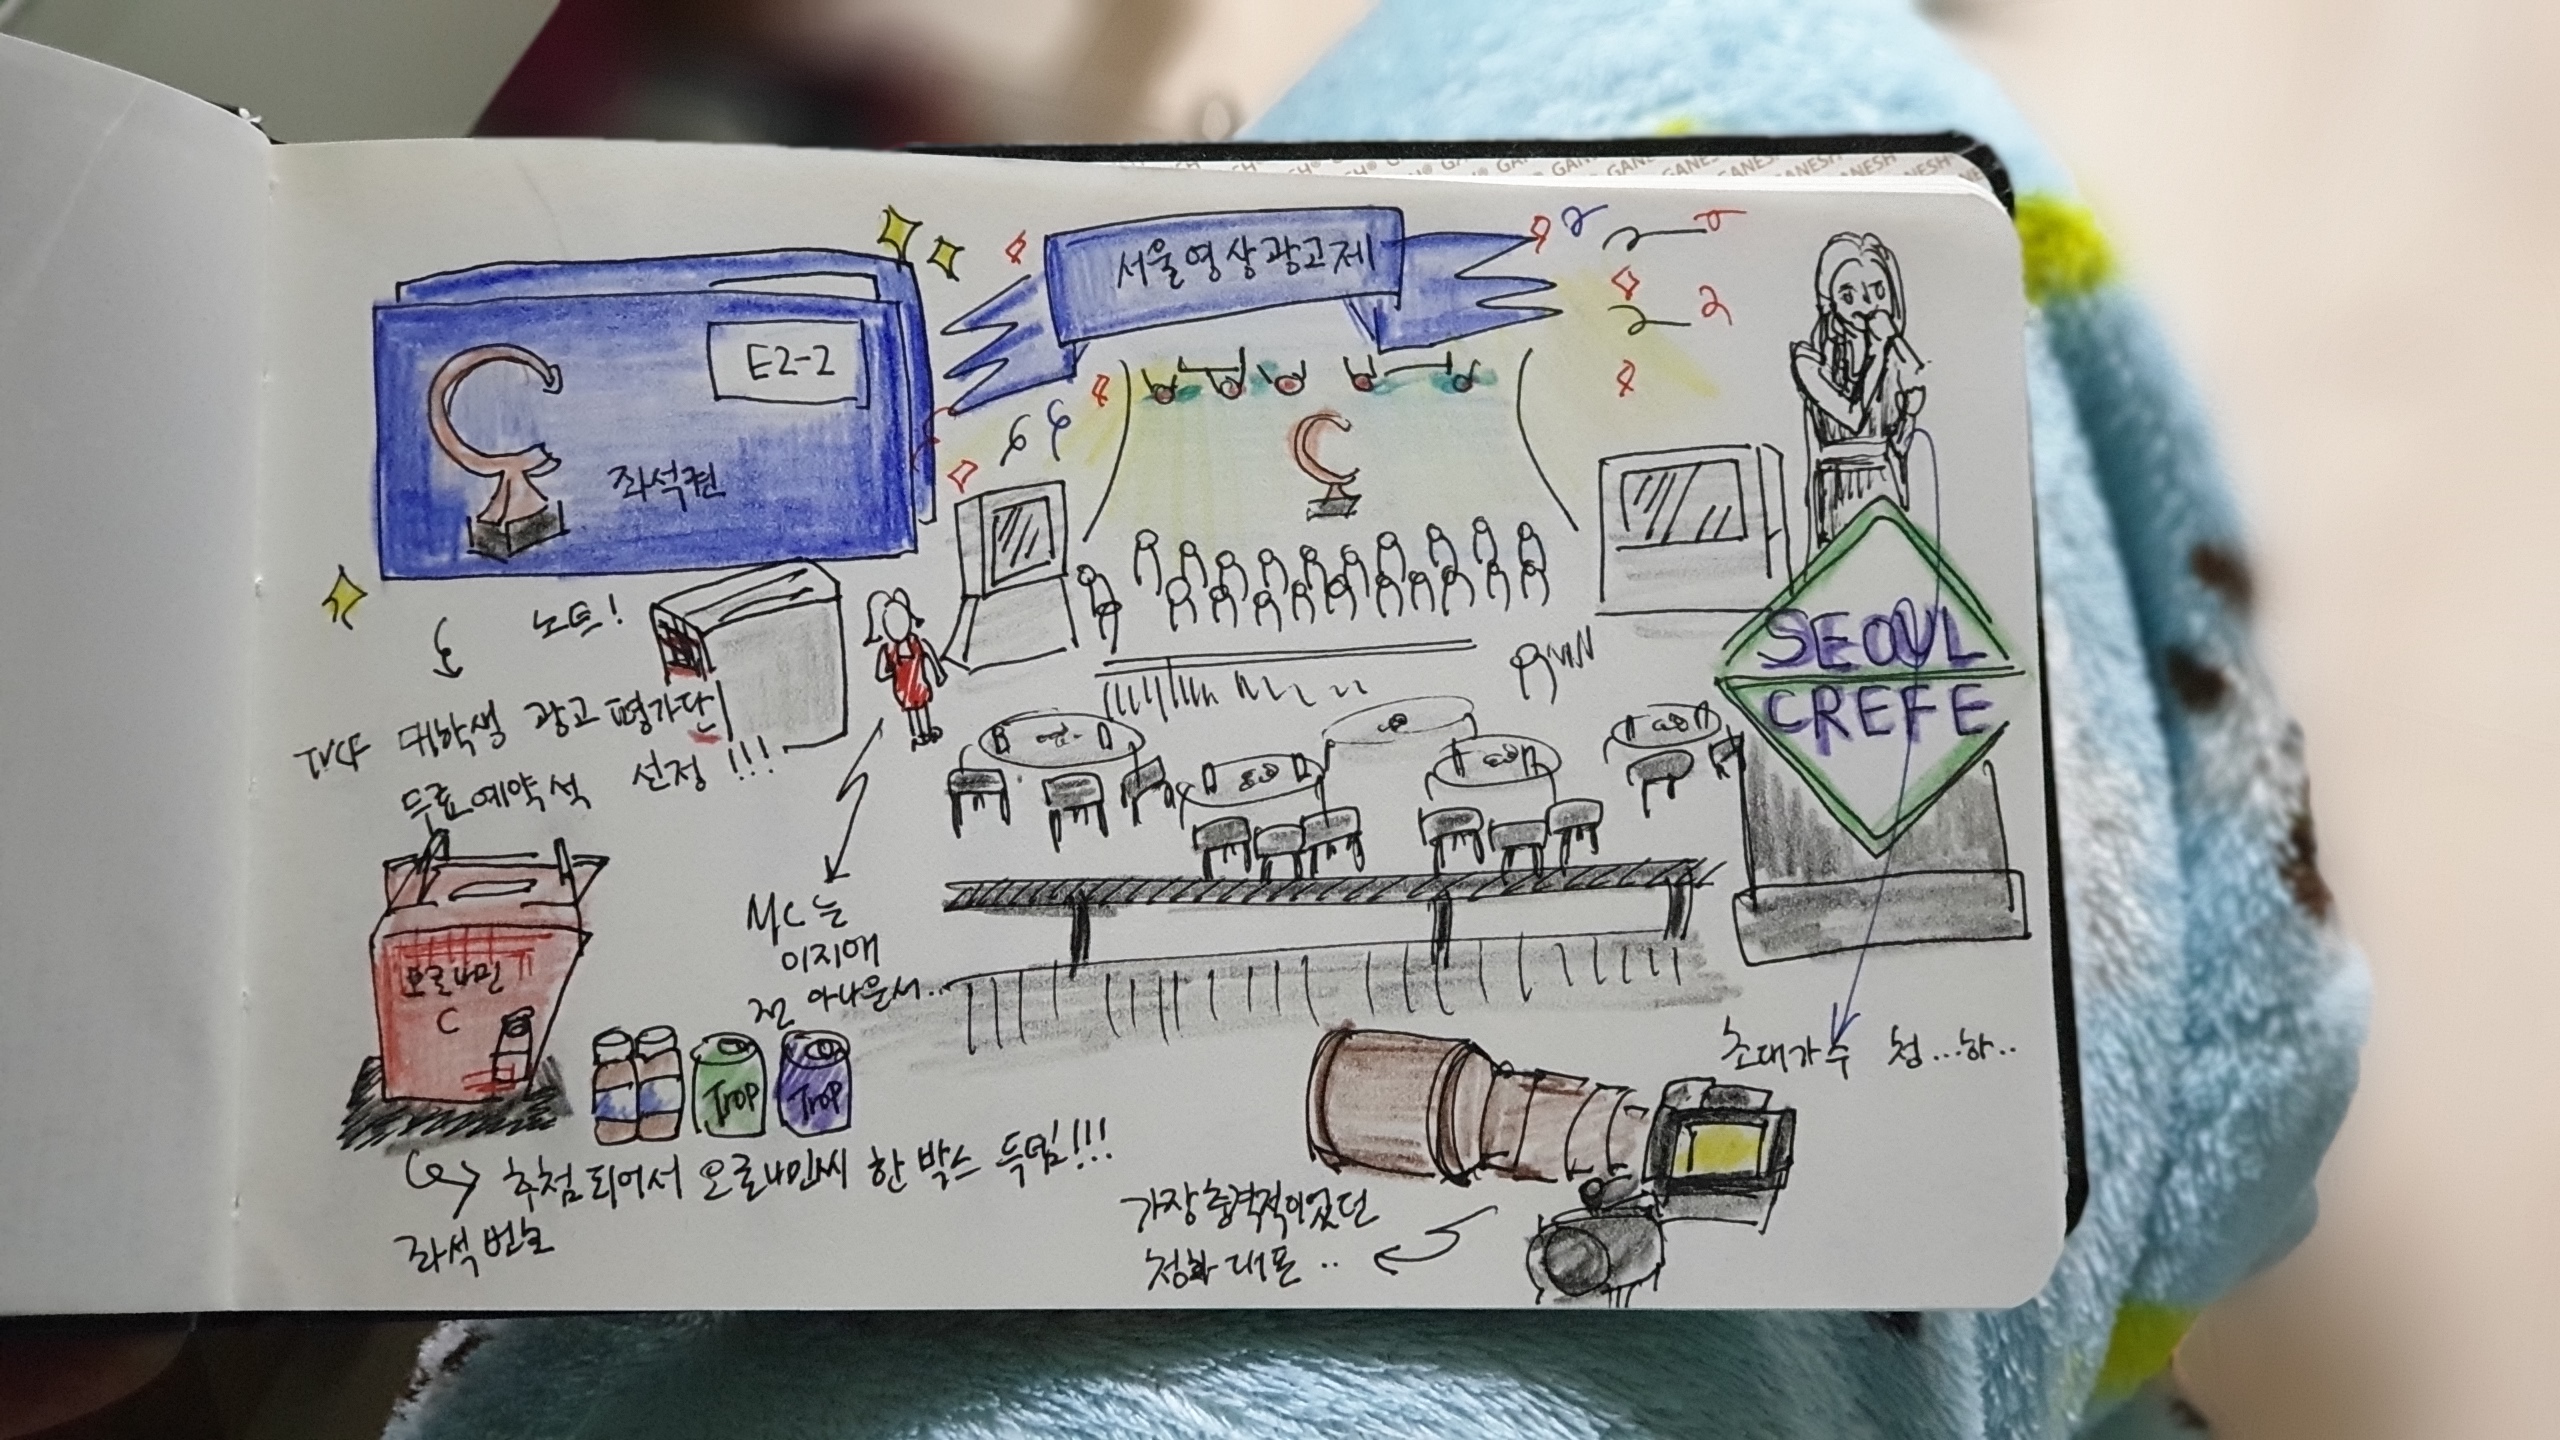 서울영상광고제
E2-2
좌석권
노트!
TVCF 대학생 광고 평가단
무료예약석 선정!!!
SEOUL
CREFE
MC는
이지애
전 아나운서..
오로나민
C
Trop
Trop
추첨되어서 오로나민씨 한 박스 득템!!!
좌석번호
초대가수 청...하..
가장충격적이었던
청하 대포..
GANESH